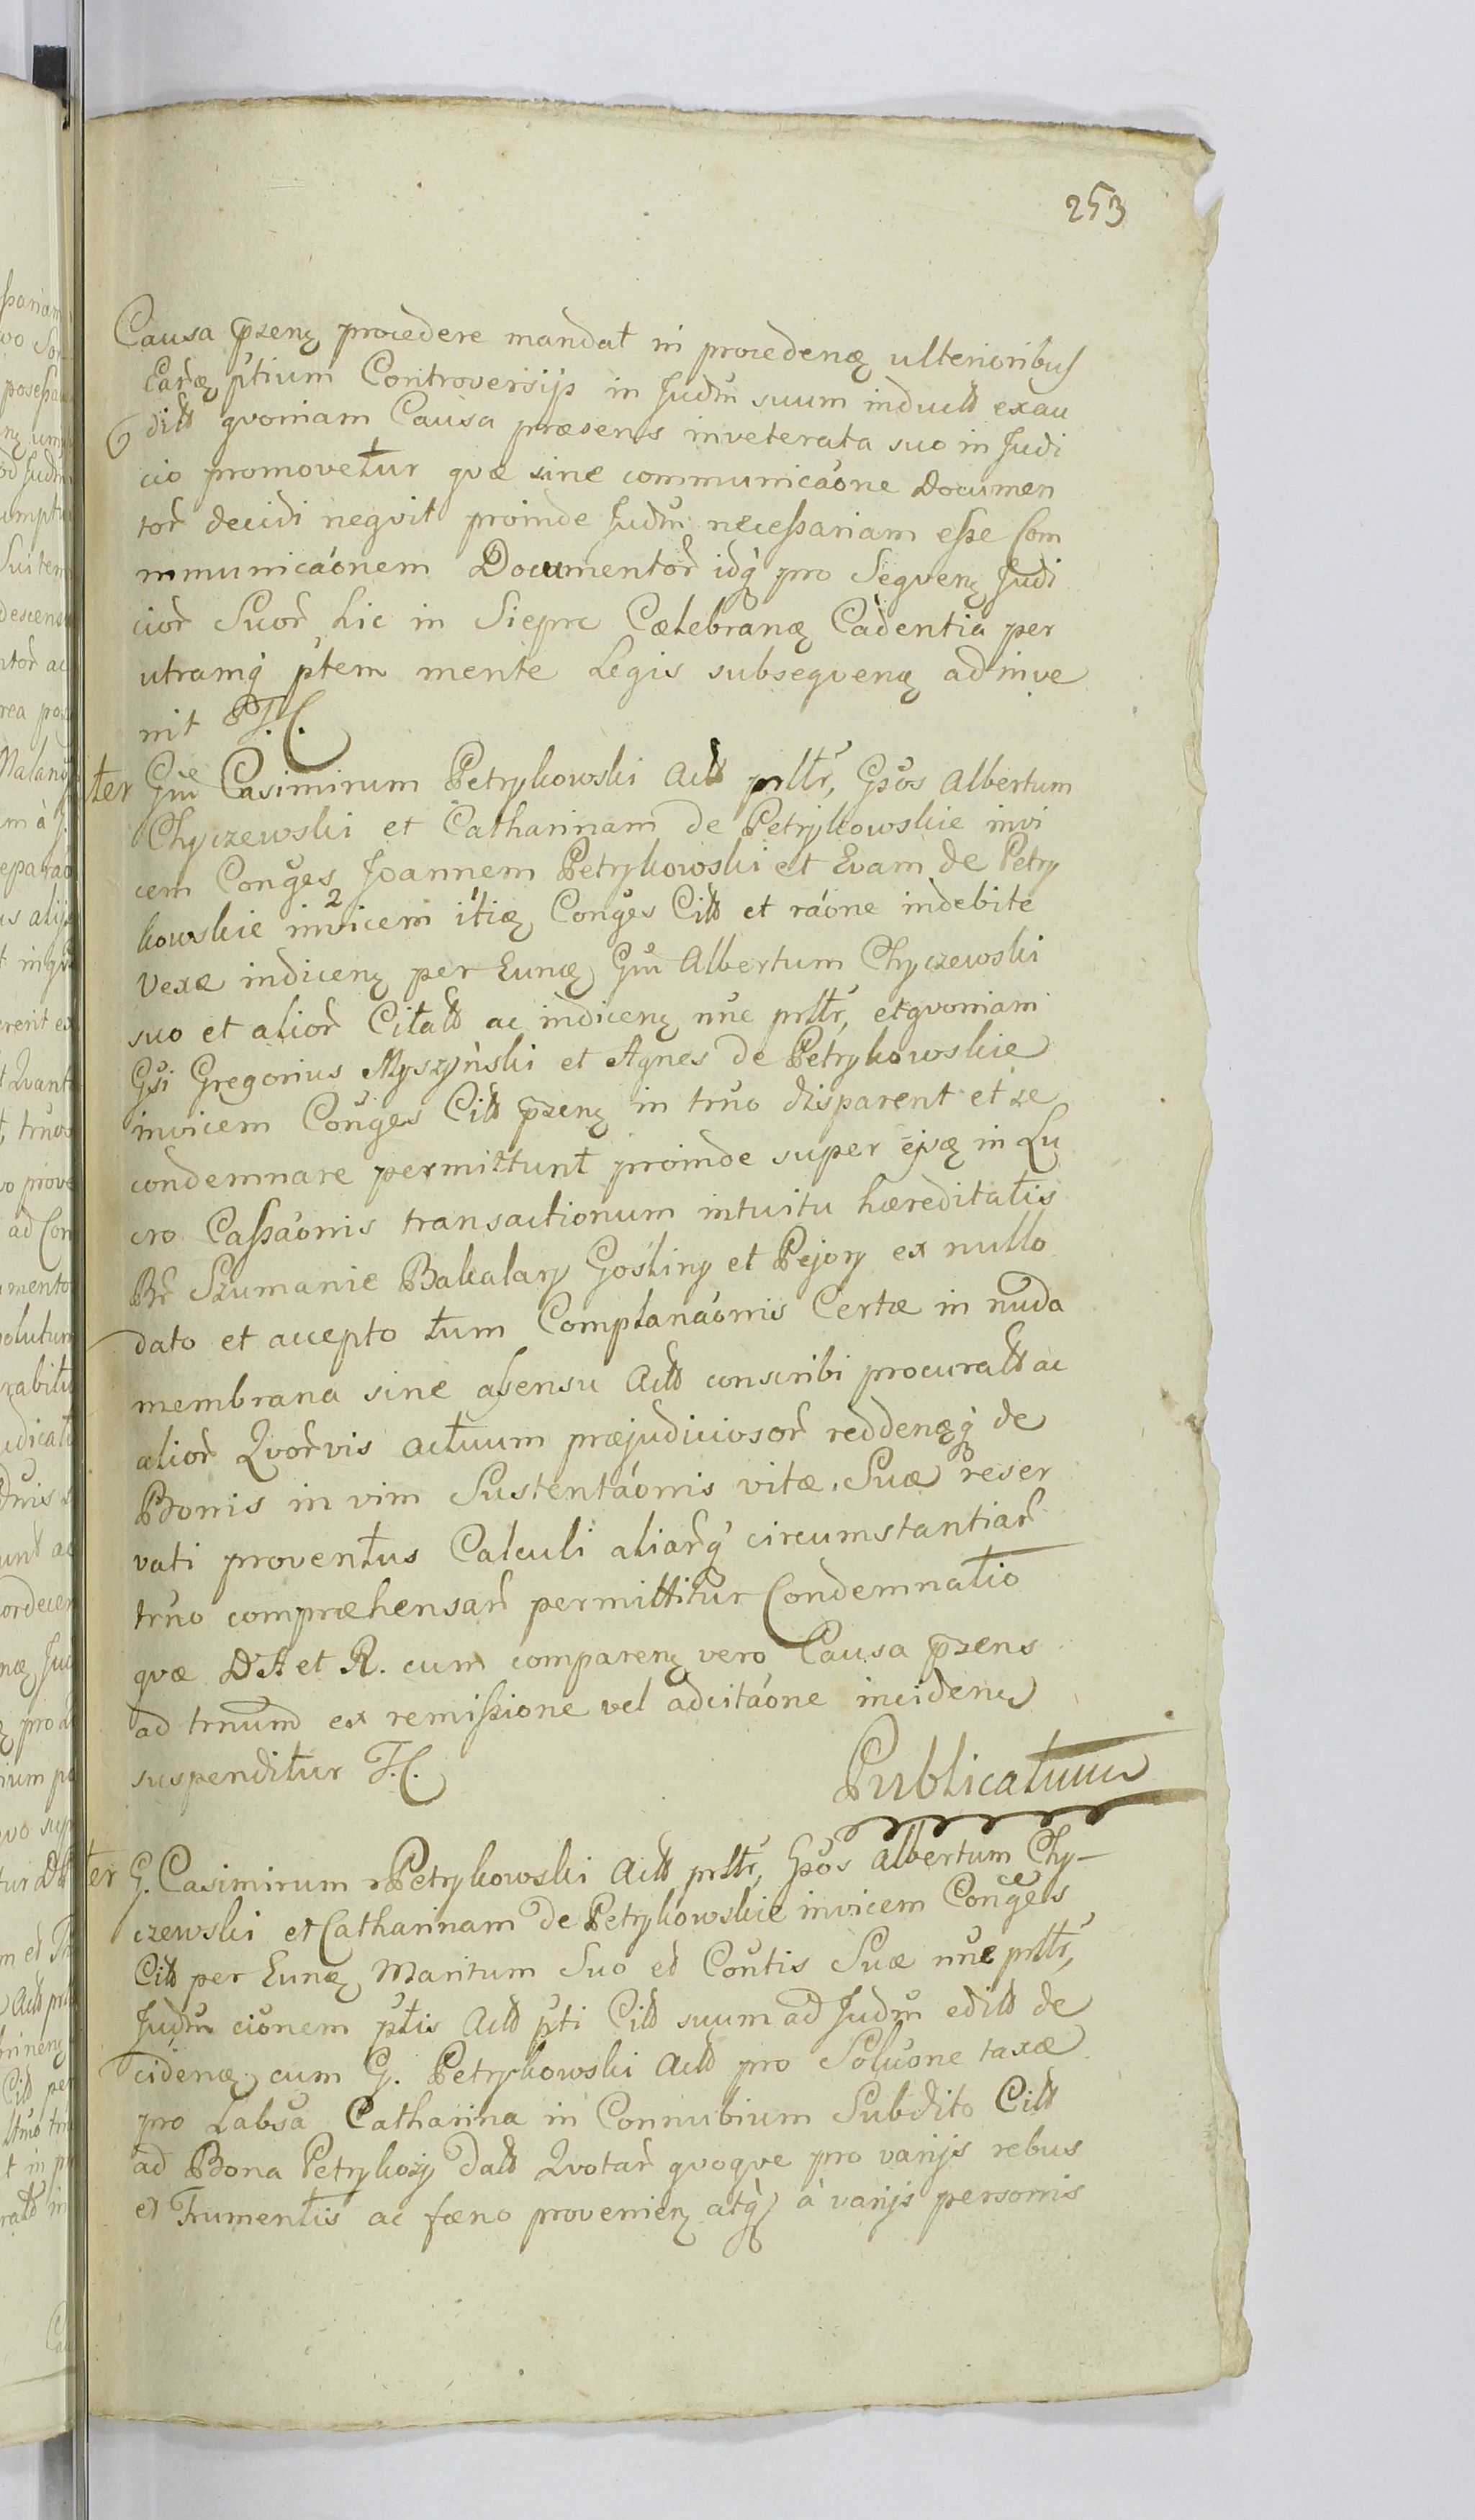 253
Causa p̄zenz procedere mandat in procedenꝫ ulterioribus
Earꝫ p̄tium Controversijs in Judm̄ suum induct̄ exau
dit̄ qvoniam Causa præsens inveterata suo in Judi
cio promovetur qvæ sine communicaõne Documen
tor̄ decidi neqvit proinde Judm̄ necessariam esse Com
mmunicaõnem Documentor̄ idq̄ pro Seqvenz Judi
cior̄ Suor̄ hic in Sieprc Cælebranꝫ Cadentia per
utramq̄ p̄tem mente Legis subseqvenꝫ adinve
nit T.C.
ter Gm̄ Casimirum Petrykowski Act̄ prltr̄, Gs̄os Albertum
Chyczewski et Catharinam de Petrykowskie invi
cem Conḡes Joannem Petrykowski et Evam de Petry
kowskie invicem 2 itiꝫ Conḡes Cit̄ et raõne indebite
vexæ indicenz per Eunꝫ Gm̄ Albertum Chyczewski
suo et alior̄ Citat̄ ac indicenz nn̄e prltr̄, et qvoniam
Gs̄i Gregorius Myszyński et Agnes de Petrykowskie
invicem Conḡes Cit̄ p̄zenz in trn̄o disparent et se
condemnare permittunt proinde super ejsꝫ in Lu
cro Cassaõnis transactionum intuitu hæreditatis
Br̄ Szumanie Bakalary Gośliny et Pejory ex nullo
dato et accepto tum Complanaõnis Certæ in nuda
membrana sine assensu Act̄ conscribi procurat̄ ac
alior̄ Qvor̄vis actuum præjudiciosor̄ reddenꝫq̄ de
Bonis in vim Sustentaõnis vitæ Suæ reser
vati proventus Calculi aliar̄q̄ circumstantiar̄
trn̄o compræhensar̄ permittitur Condemnatio
qvæ D. A et R. cum comparenz vero Causa p̄zens
ad trnum ex remissione vel adcitaõne incidens
suspenditur T.C.
Publicatum
ter G. Casimirum Petrykowski Act̄ prltr̄, Gs̄os Albertum Chy-
czewski et Catharinam de Petrykowskie invicem Conḡes
Cit̄ per Eunꝫ Maritum Suo et Coñtis Suæ nn̄e prltr̄,
Judm̄ cioñem p̄tis Act̄ p̄ti Cit̄ suum ad Judm̄ edit̄ de
cidenꝫ cum G. Petrykowski Act̄ pro Soluõne taxæ
pro Labsa Catharina in Connubium Subdito Cit̄
ad Bona Petrykozy dat̄ Qvotar̄ qvoqve pro varijs rebus
et Frumentis ac fœno provenienz atq̄ à varijs personis